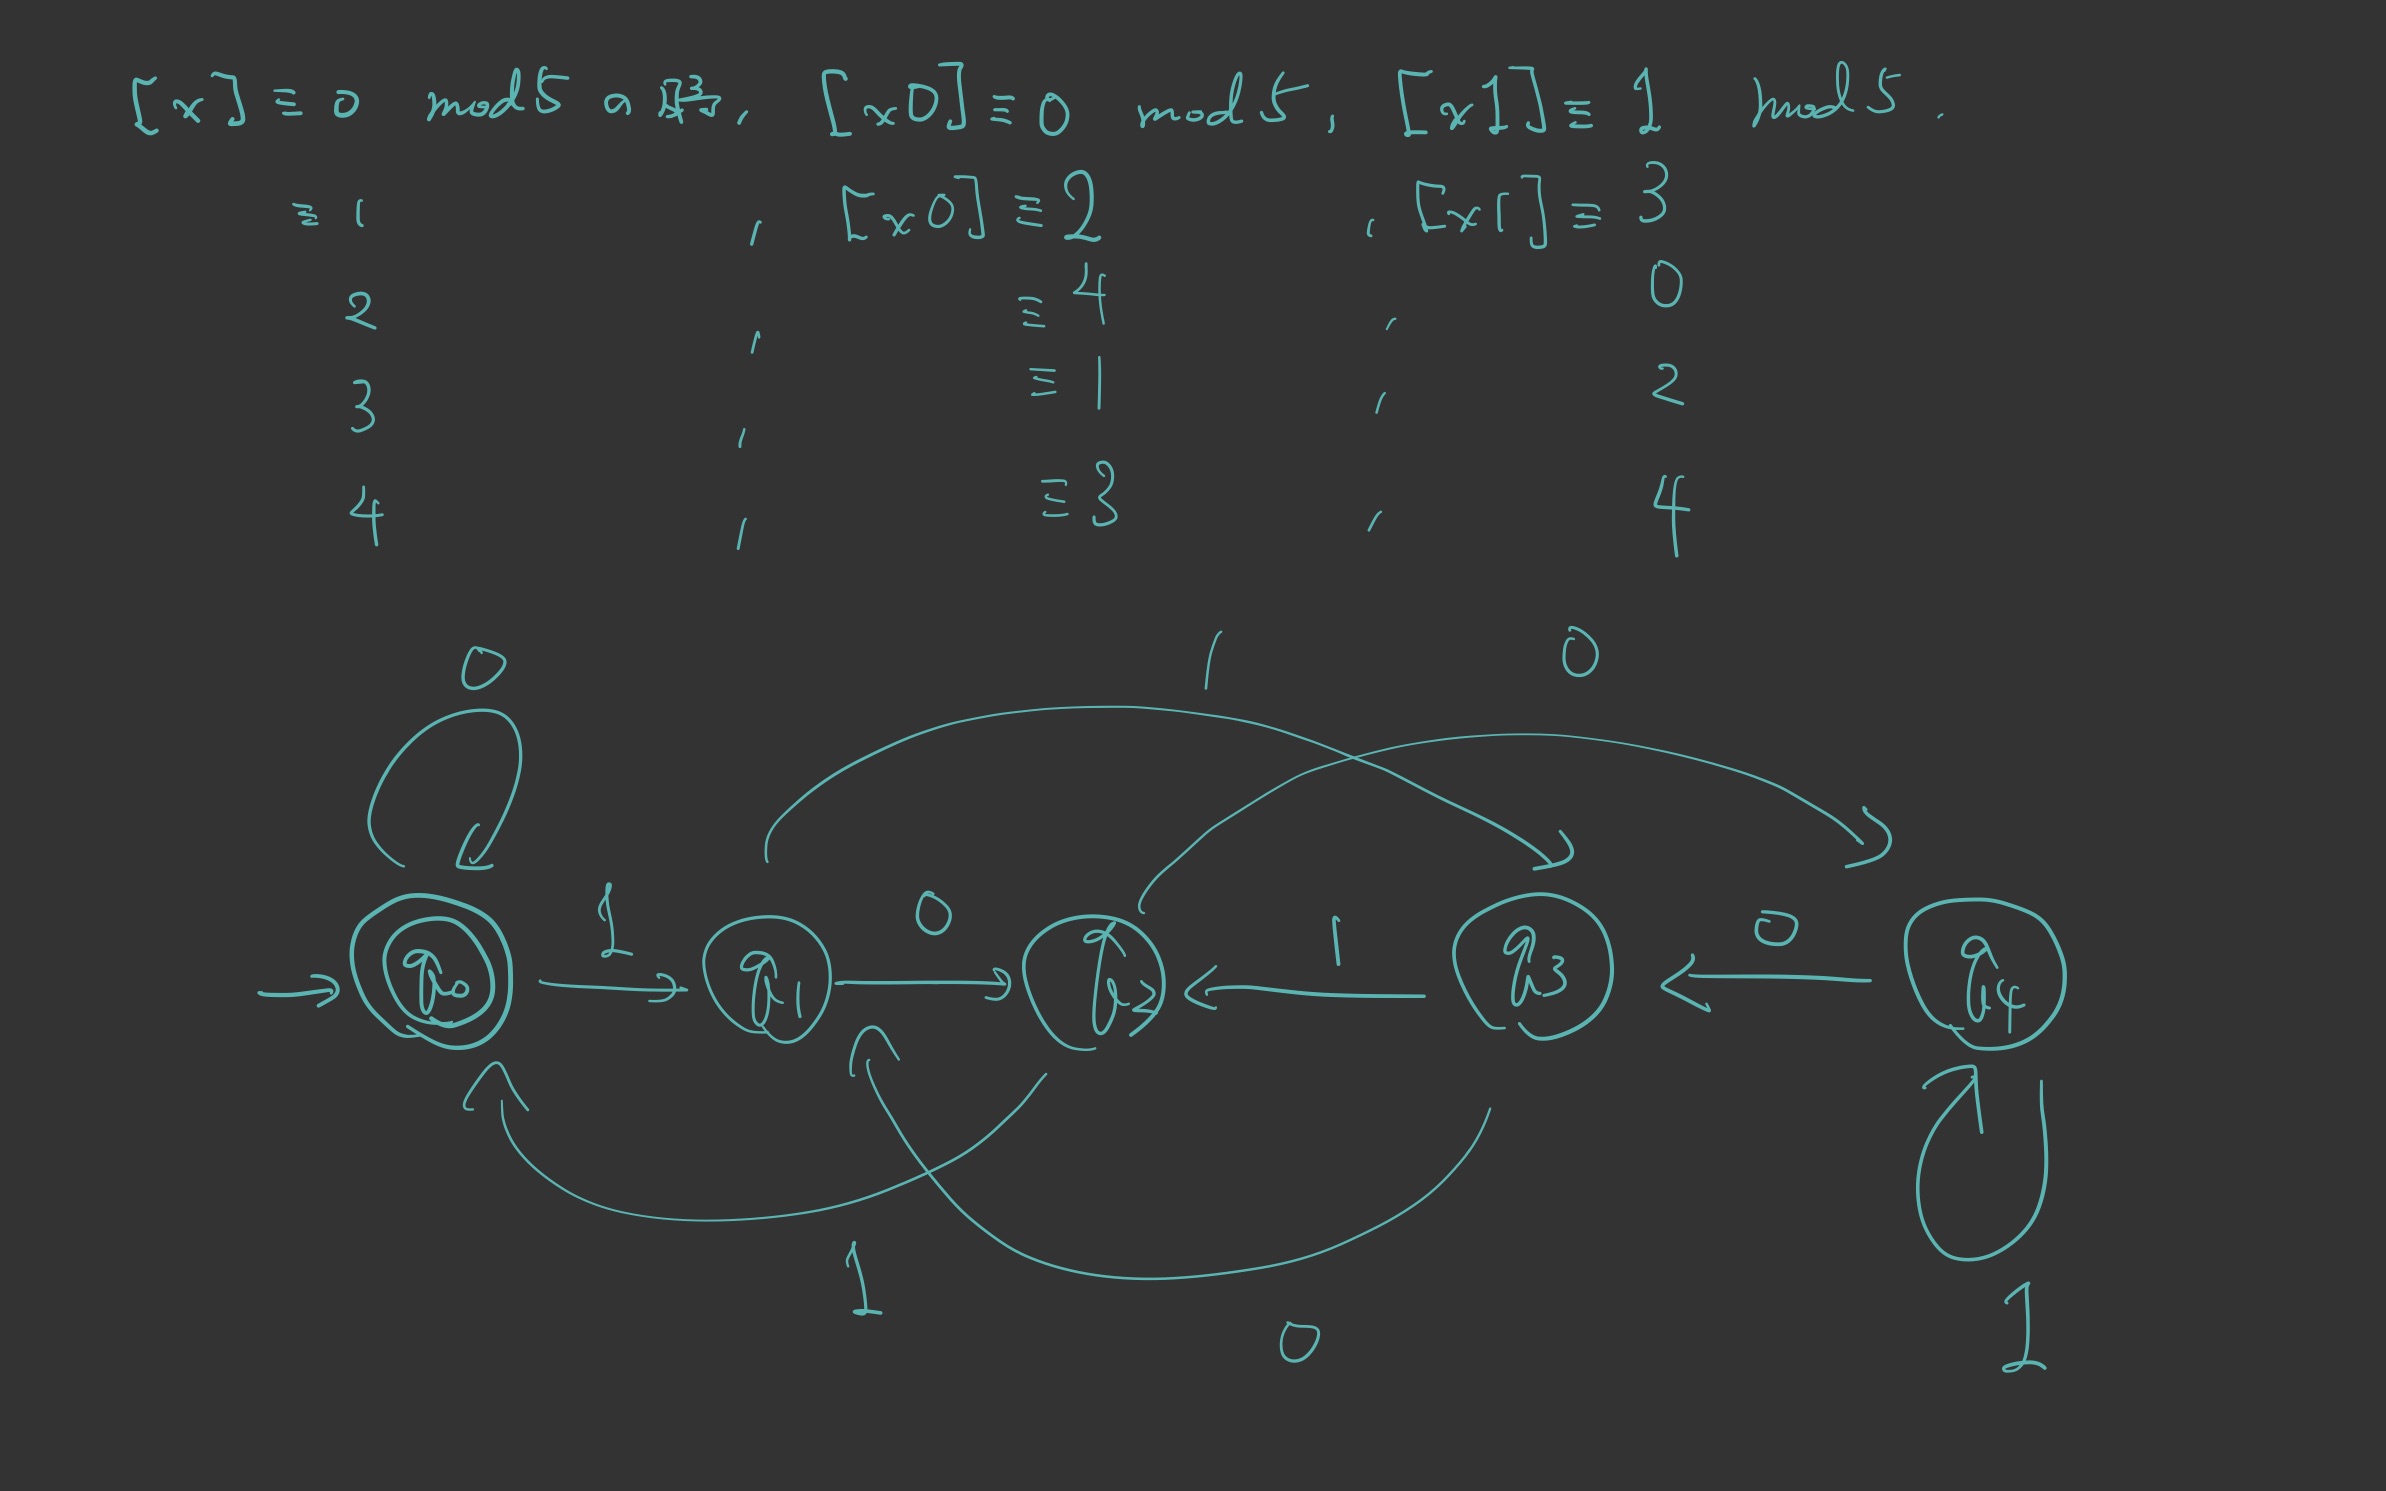 [x] ≡ 0 mod 5, [x0] ≡ 0 mod 5, [x1] ≡ 1 mod 5.
≡ 1, [x0] ≡ 2, [x1] ≡ 3
2, ≡ 4, 0
3, ≡ 1, 2
4, ≡ 3, 4
0 1 0
1 0 1 0
q0 q1 q2 q3 q4
1 0 1